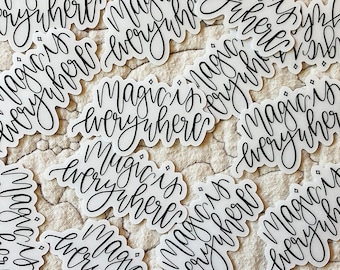 Magic is
everywhere
Magic is
everywhere
Magic is
everywhere
Magic is
everywhere
Magic is
everywhere
Magic is
everywhere
Magic is
everywhere
Magic is
everywhere
Magic is
everywhere